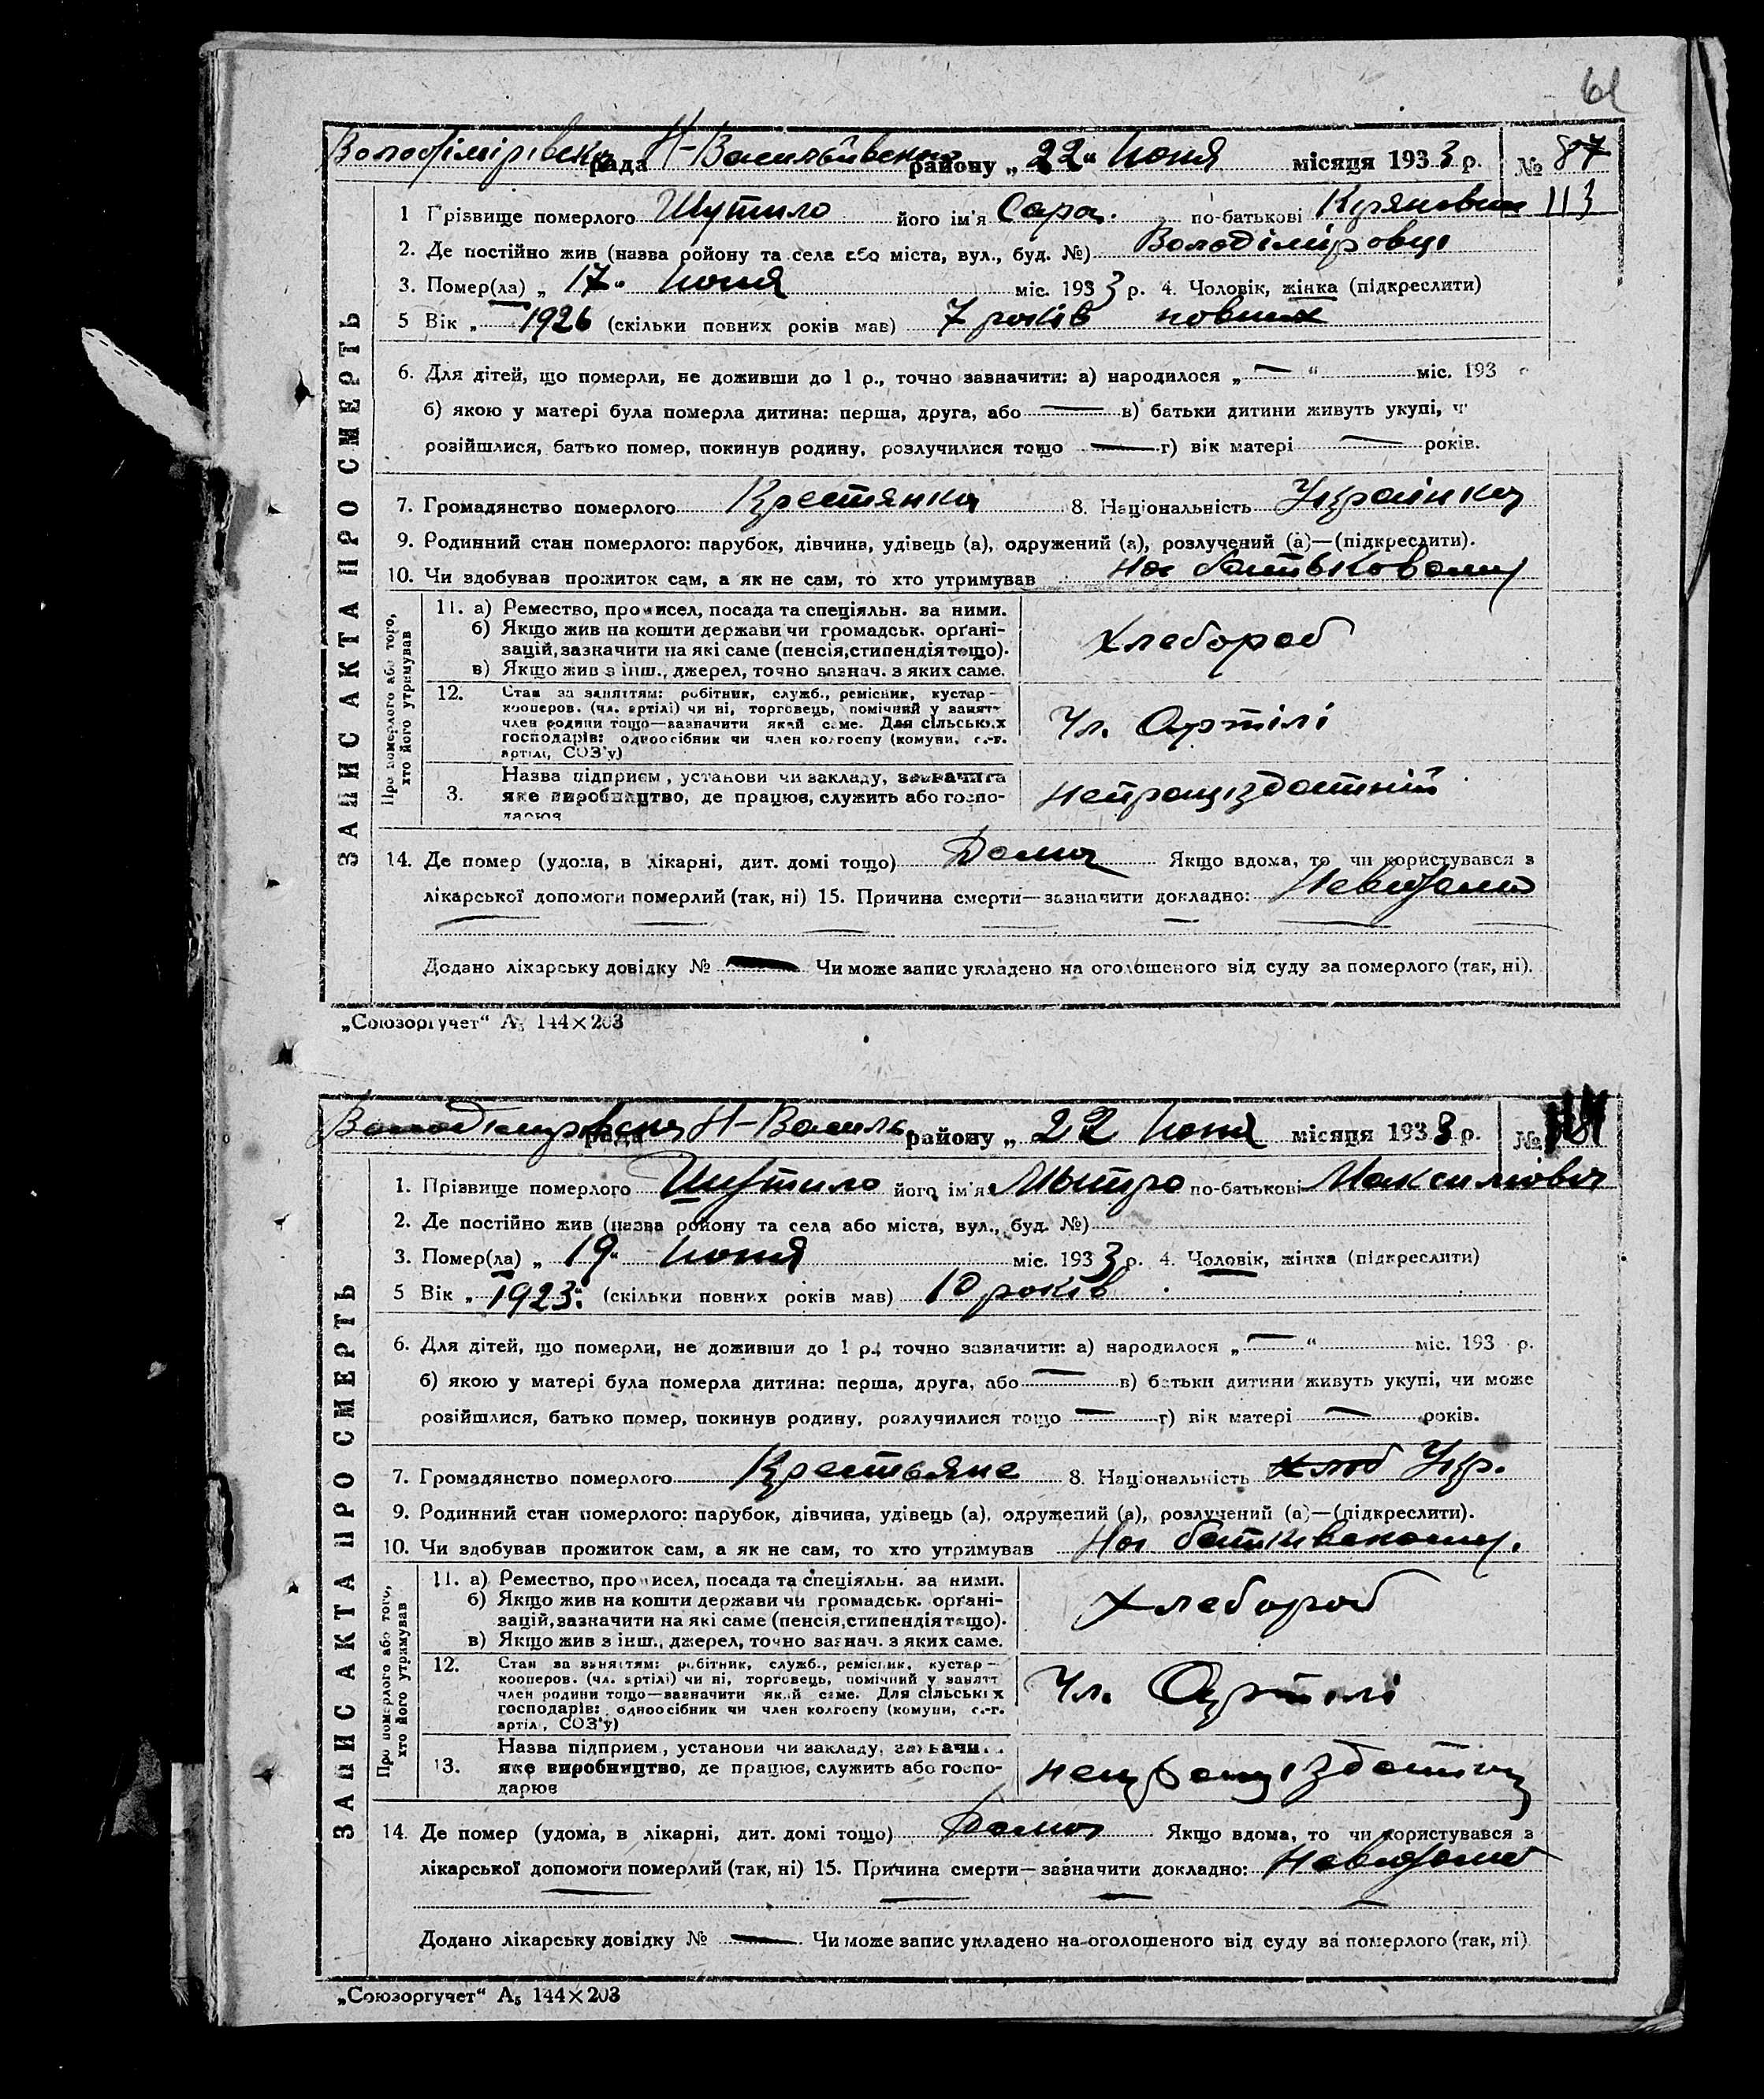 61
Володімірівська рада Н-Васильївського району „ 22 " Іюня місяця 1933 р. № 87
113
1 Прізвище померлого Шутило його ім'я Сара. по-батькові
2. Де постійно жив (назва ройону та села або міста, вул., буд. №) Володіміровці
3. Помер(ла) „ 17 " Іюня міс. 1933 р. 4. Чоловік, жінка (підкреслити)
5 Вік „ 1926 (скільки повних років мав) 7 років повних
6. Для дітей, що померли, не доживши до 1 р., точно зазначити: а) народилося „ — " міс. 193
б) якою у матері була померла дитина: перша, друга, або — в) батьки дитини живуть укупі, ч
розійшлися, батько помер, покинув родину, розлучилися тощо — г) вік матері — років.
7. Громадянство померлого Крестянка 8. Національність Українка
9. Родинний стан померлого: парубок, дівчина, удівець (а), одружений (а), розлучений (а)—(підкреслити).
10. Чи здобував прожиток сам, а як не сам, то хто утримував На батьковому
ЗАПИС АКТА ПРО СМЕРТЬ
Про померлого або того, хто його утримував
11. а) Ремество, промисел, посада та спеціяльн. за ними.
б) Якщо жив на кошти держави чи громадськ. орґані-
зацій, зазначити на які саме (пенсія, стипендія тощо).
в) Якщо жив з інш., джерел, точно зазнач. з яких саме.
Хлебороб
12. Стан за заняттям: робітник, служб., ремісник, кустар—
кооперов. (чл. артілі) чи ні, торговець, помічний у занятт
член родини тощо—зазначити який саме. Для сільських
господарів: одноосібник чи член колгоспу (комуни, с.-г.
артілі, СОЗ'у)
Чл. Артілі
Назва підприєм, установи чи закладу, зазначити
3. яке виробництво, де працює, служить або госпо-
дарює
Непрацездатній
14. Де помер (удома, в лікарні, дит. домі тощо) Дома Якщо вдома, то чи користувався з
лікарської допомоги померлий (так, ні) 15. Причина смерти—зазначити докладно: Невідомо
Додано лікарську довідку № — Чи може запис укладено на оголошеного від суду за померлого (так, ні).
„Союзоргучет" А5 144×203
Володіміровська рада Н-Василь. району „ 22 Іюня місяця 1933 р. №
1. Прізвище померлого Шутило його ім'я Мытро по-батькові Максимовіч
2. Де постійно жив (назва ройону та села або міста, вул., буд. №)
3. Помер(ла) „ 19 " Іюня міс. 1933 р. 4. Чоловік, жінка (підкреслити)
5 Вік „ 1923 " (скільки повних років мав) 10 років
6. Для дітей, що померли, не доживши до 1 р., точно зазначити: а) народилося „ — " міс. 193 р.
б) якою у матері була померла дитина: перша, друга, або — в) батьки дитини живуть укупі, чи може
розійшлися, батько помер, покинув родину, розлучилися тощо — г) вік матері — років.
7. Громадянство померлого Крестьяне 8. Національність Укр.
9. Родинний стан померлого: парубок, дівчина, удівець (а), одружений (а), розлучений (а)—(підкреслити).
10. Чи здобував прожиток сам, а як не сам, то хто утримував На
ЗАПИС АКТА ПРО СМЕРТЬ
Про померлого або того, хто його утримував
11. а) Ремество, промисел, посада та спеціяльн. за ними.
б) Якщо жив на кошти держави чи громадськ. орґані-
зацій, зазначити на які саме (пенсія, стипендія тощо).
в) Якщо жив з інш., джерел, точно зазнач. з яких саме.
Хлебороб
12. Стан за заняттям: робітник, служб., ремісник, кустар—
кооперов. (чл. артілі) чи ні, торговець, помічний у занятт
член родини тощо—зазначити який саме. Для сільських
господарів: одноосібник чи член колгоспу (комуни, с.-г.
артілі, СОЗ'у)
Чл. Артілі
Назва підприєм., установи чи закладу, зазначи
13. яке виробництво, де працює, служить або госпо-
дарює
14. Де помер (удома, в лікарні, дит. домі тощо) Дома Якщо вдома, то чи користувався з
лікарської допомоги померлий (так, ні) 15. Причина смерти—зазначити докладно: Невідомо
Додано лікарську довідку № — Чи може запис укладено на оголошеного від суду за померлого (так, ні)
„Союзоргучет" А5 144×203